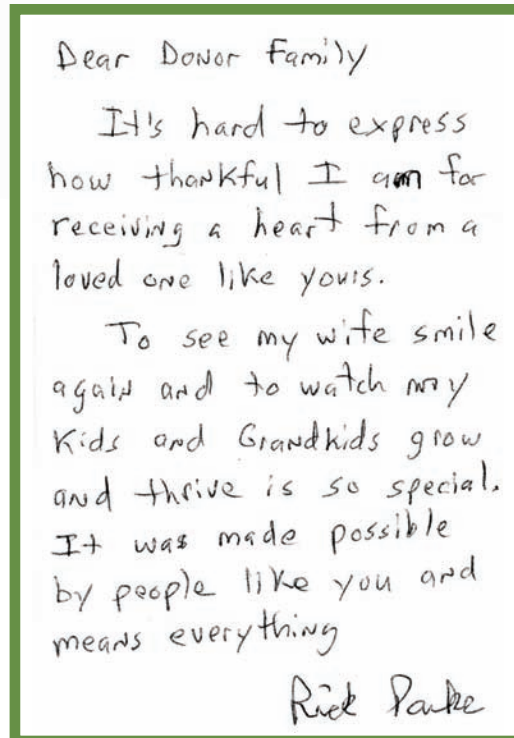 Dear Donor Family
It's hard to express
how thankful I am for
receiving a heart from a
loved one like yours.
To see my wife smile
again and to watch my
Kids and Grandkids grow
and thrive is so special.
It was made possible
by people like you and
means everything
Rick Parke